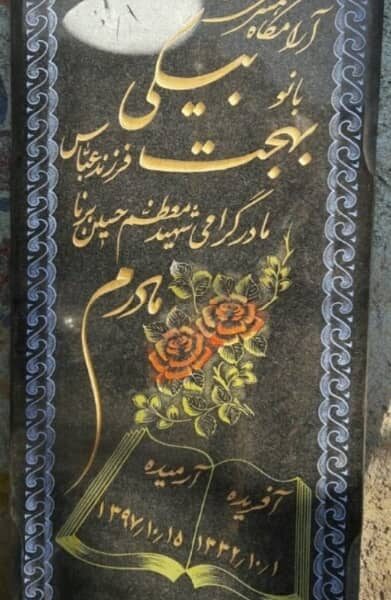 آرامگاه
بانو
بیکی
بهجت فرزند عباس
مادر گرامی شهید معظم حسین برنا
مادرم
آفریده آرمیده
۱۳۳۲٫۱۰٫۱ ۱۳۹۷٫۱۰٫۱۵